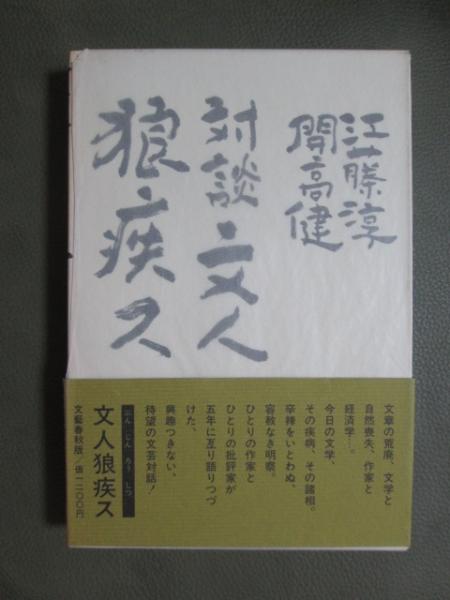 江藤淳
開高健
対談 文人
狼疾ス
文章の荒廃、文学と
自然喪失、作家と
経済学…。
今日の文学、
その疾病、その諸相。
辛辣をいとわぬ、
容赦なき明察。
ひとりの作家と
ひとりの批評家が
五年に亙り語りつづ
けた、
興趣つきない、
待望の文芸対話!
ぶん じん ろう しつ
文人狼疾ス
文藝春秋版/価一二〇〇円